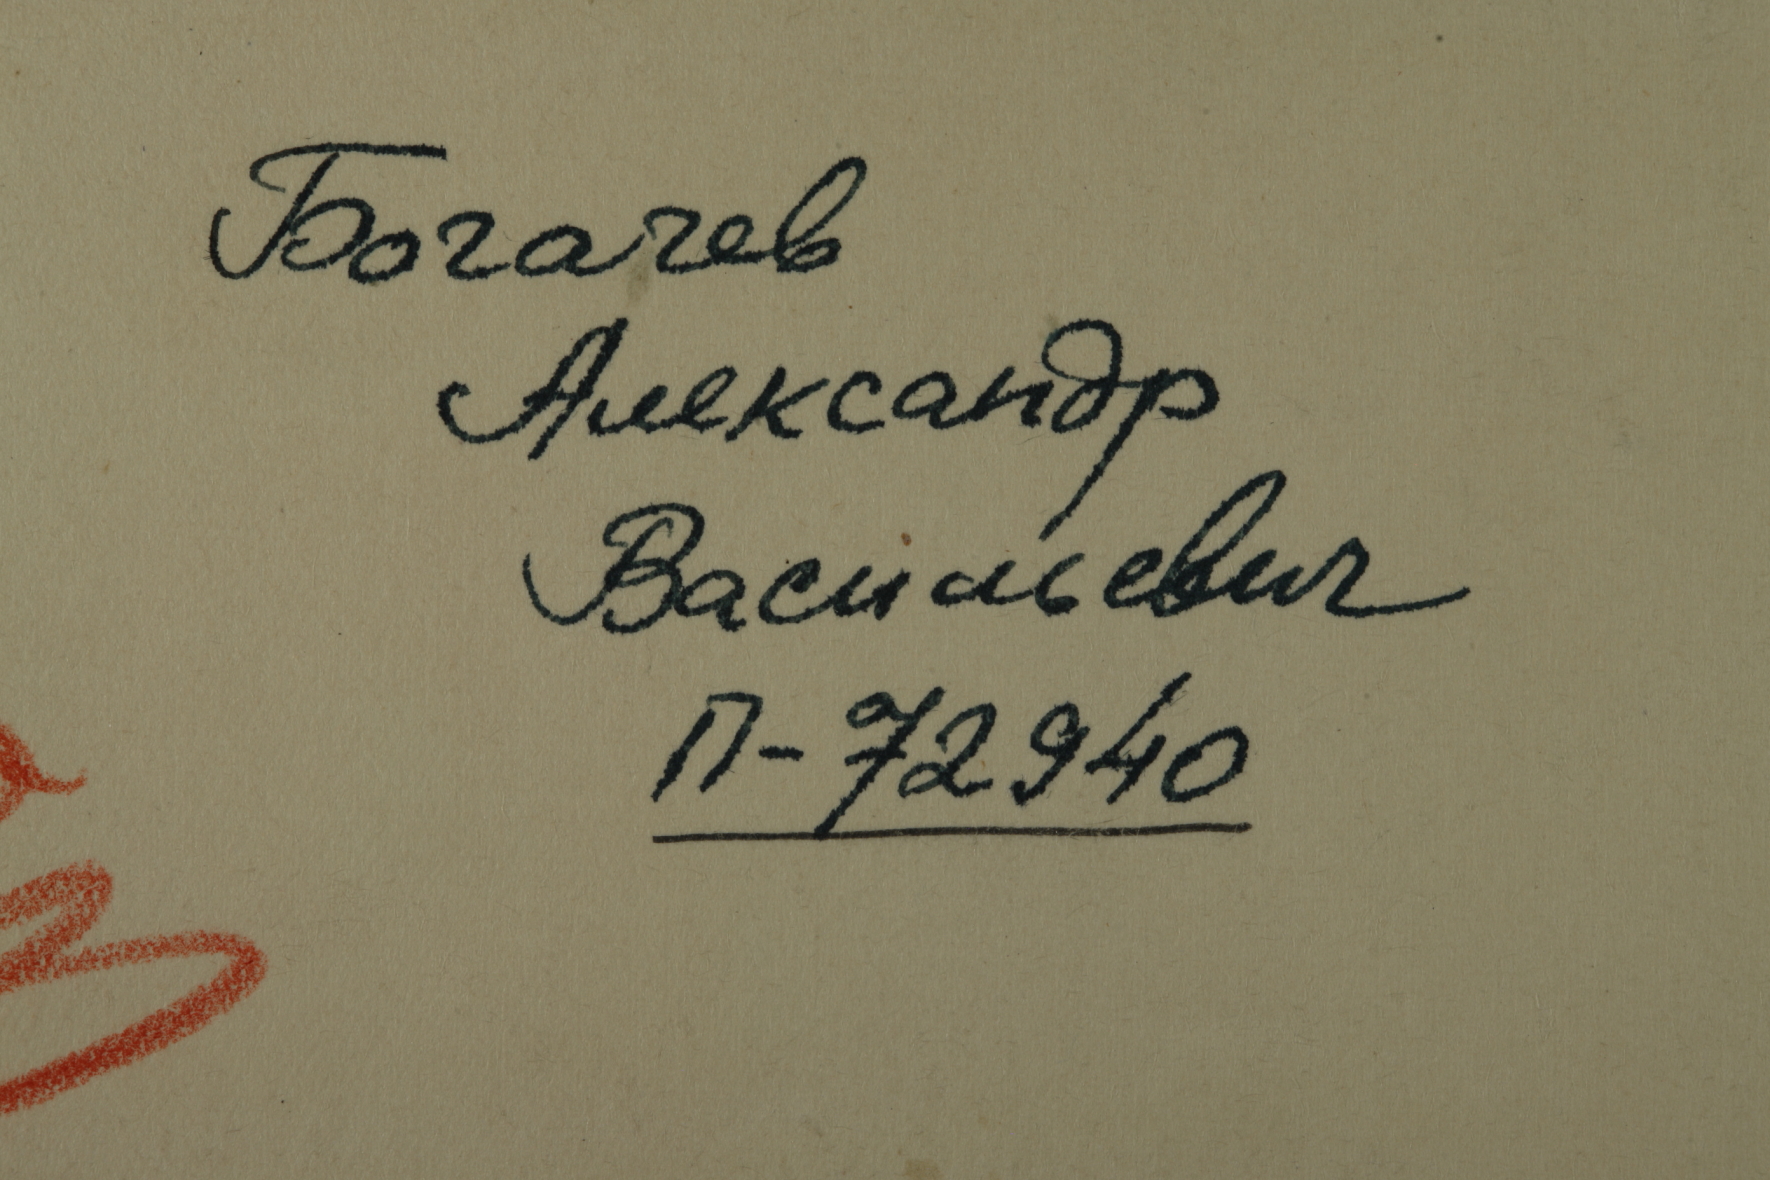 Богачев
Александр
Васильевич
П-72940